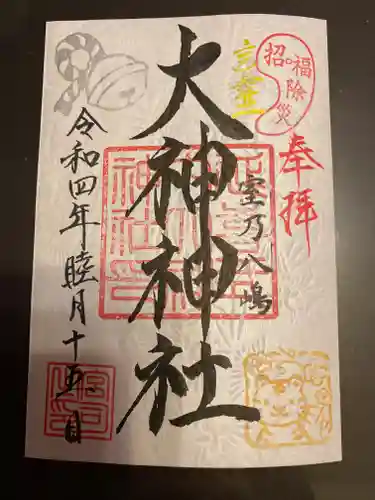 奉拝
招福除災
室乃八嶋
大神神社
令和四年睦月十五日